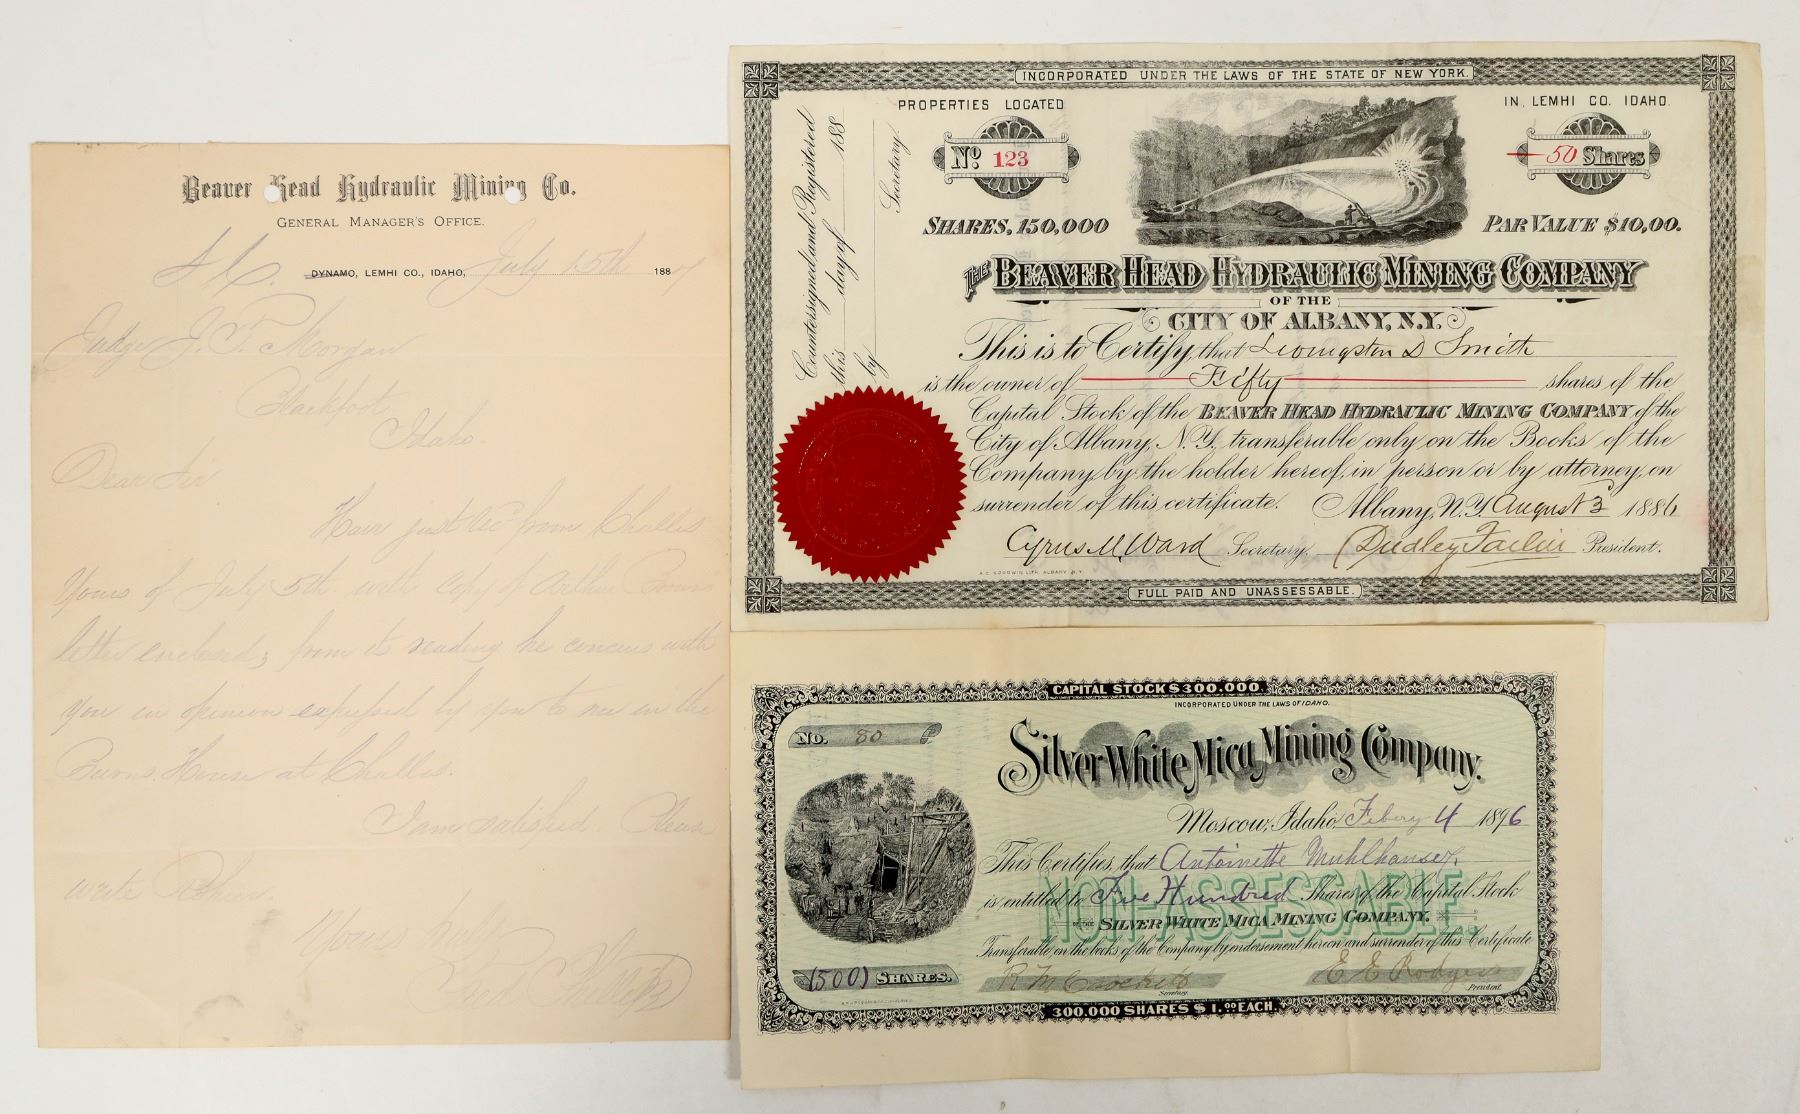 Beaver Head Hydraulic Mining Co.
GENERAL MANAGER'S OFFICE.
DYNAMO, LEMHI CO., IDAHO, July 15th 188
Judge J. T. Morgan
Blackfoot
Idaho.
Dear Sir
Have just rec from Challis
Yours of July 5th with copy of Arthur
letter enclosed; from its reading he concurs with
you in opinion expressed by you to me in the
Burns House at Challis.
I am satisfied. Please
write
Yours
INCORPORATED UNDER THE LAWS OF THE STATE OF NEW YORK.
PROPERTIES LOCATED IN LEMHI CO. IDAHO.
No 123
50 Shares
SHARES, 150,000
PAR VALUE $10,00.
THE BEAVER HEAD HYDRAULIC MINING COMPANY
OF THE
CITY OF ALBANY, N.Y.
This is to Certify, that Livingston D Smith
is the owner of Fifty shares of the
Capital Stock of the BEAVER HEAD HYDRAULIC MINING COMPANY of the
City of Albany, N.Y. transferable only on the Books of the
Company by the holder hereof, in person or by attorney, on
surrender of this certificate. Albany, N.Y. August 3 1886
Cyrus M Ward Secretary. Dudley President.
A.C. GOODWIN, LITH. ALBANY, N.Y.
FULL PAID AND UNASSESSABLE.
Countersigned and Registered
this day of 188
by Secretary.
CAPITAL STOCK $300.000.
INCORPORATED UNDER THE LAWS OF IDAHO.
No. 80
Silver White Mica Mining Company.
Moscow, Idaho, Febury 4 1896
This Certifies, that Antoinette Muhlhauser
is entitled to Five Hundred Shares of the Capital Stock
NON-ASSESSABLE.
OF THE SILVER WHITE MICA MINING COMPANY.
Transferable on the books of the Company by endorsement hereon and surrender of this Certificate
(500) SHARES.
R M Crockett
Secretary
E E Rodgers
President
300.000 SHARES $1.00 EACH.